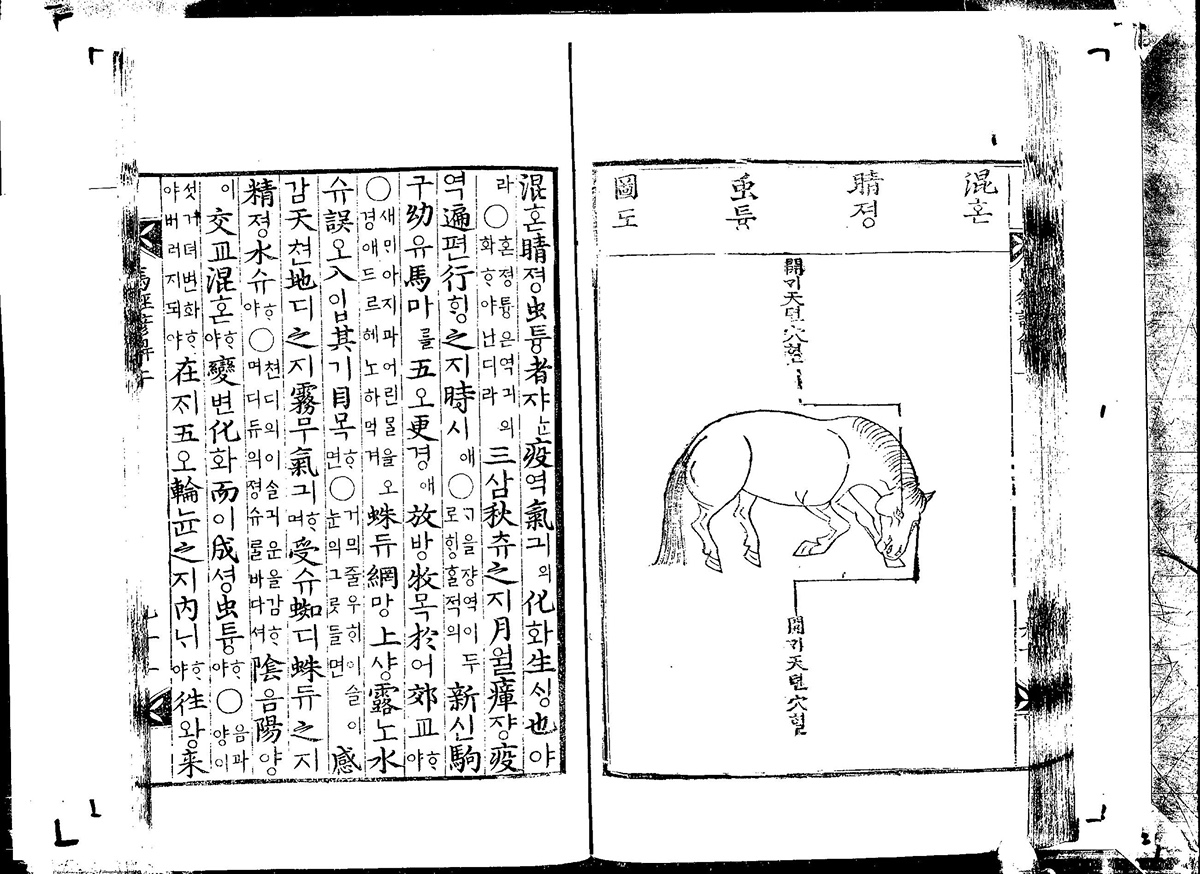 混혼 睛졍 䖝튱 圖도
開ᄀᆡ天텬穴혈
開ᄀᆡ天텬穴혈
混혼睛졍虫튱者쟈ᄂᆞᆫ疫역氣긔의化화生ᄉᆡᆼ也야
라○혼졍튱은역긔의화ᄒᆞ야난디라三삼秋츄之지月월瘴쟝疫
역遍편行ᄒᆡᆼ之지時시애○ᄀᆞ을쟝역이두로ᄒᆡᆼᄒᆞᆯ적의新신駒
구幼유馬마를五오更경애放방牧목於어郊교ᄒᆞ야
○새ᄆᆡ아지과어린ᄆᆞᆯ을오경애드르헤노하먹겨蛛듀網망上샹露노水
슈誤오入입其기目목ᄒᆞ면○거믜줄우희이슬이눈의그릇들면感
감天텬地디之지霧무氣긔ᄒᆞ며受슈蜘디蛛듀之지
精졍水슈ᄒᆞ야○텬디의이슬긔운을감ᄒᆞ며디듀의졍슈ᄅᆞᆯ바다셔陰음陽양
이交교混혼ᄒᆞ야變변化화而이成셩虫튱ᄒᆞ야○음과양이
섯거뎌변화ᄒᆞ야버러지되야在ᄌᆡ五오輪뉸之지內ᄂᆡᄒᆞ야往왕来
馬經諺解下